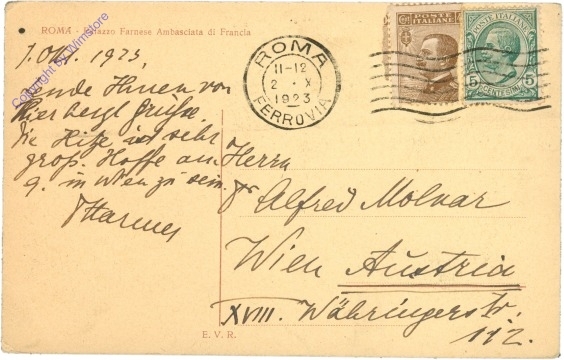 ROMA - Palazzo Farnese Ambasciata di Francia
Copyright by Wimstore
1. Okt. 1923,
Sende Ihnen von
hier herzl. Grüße.
Die Hitze ist sehr
groß. Hoffe am
9. in Wien zu sein.
ROMA
11-12
2 · X
1923
FERROVIA
POSTE
ITALIANE
POSTE ITALIANE
5 5
CENTESIMI
Herrn
Dr Alfred Molnar
Wien Austria
XVIII. Währingerstr.
112.
E. V. R.